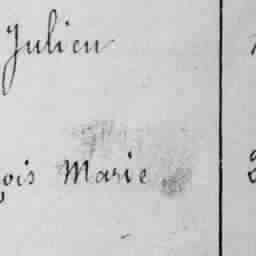 Julien
çois Marie